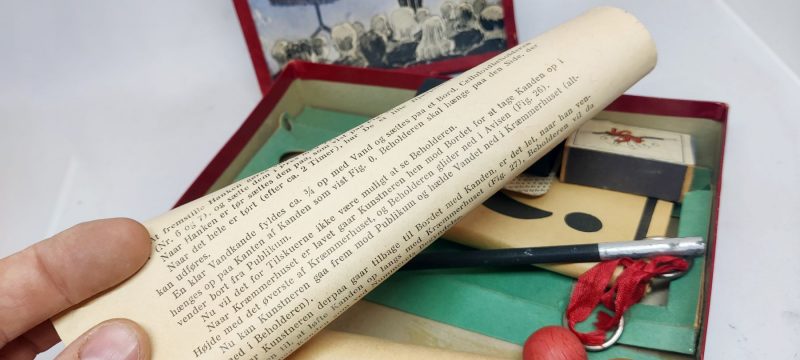 fremstille Hanken
(Nr. 5 og 7), og sætte dem i
Naar Hanken er tør sættes den paa, som vist paa
Naar det hele er tørt (efter ca. 2 Timer), har De
kan udføres.
En klar Vandkande fyldes ca. ¾ op med Vand og sættes paa et Bord. Celluloidbeholderen
hænges op paa Kanten af Kanden som vist Fig. 0. Beholderen skal hænge paa den Side, der
vender bort fra Publikum.
Nu vil det for Tilskuerne ikke være muligt at se Beholderen.
Naar Kræmmerhuset er lavet gaar Kunstneren hen mod Bordet for at tage Kanden op i
Højde med det øverste af Kræmmerhuset, og Beholderen glider ned i Avisen (Fig. 26).
Nu kan Kunstneren gaa frem mod Publikum og hælde Vandet ned i Kræmmerhuset (alt-
med i Beholderen).
Kunstneren derpaa gaar tilbage til Bordet med Kanden, er det let, naar han ven-
til, at løfte Kanden op langs med Kræmmerhuset (Fig. 27). Beholderen vil da